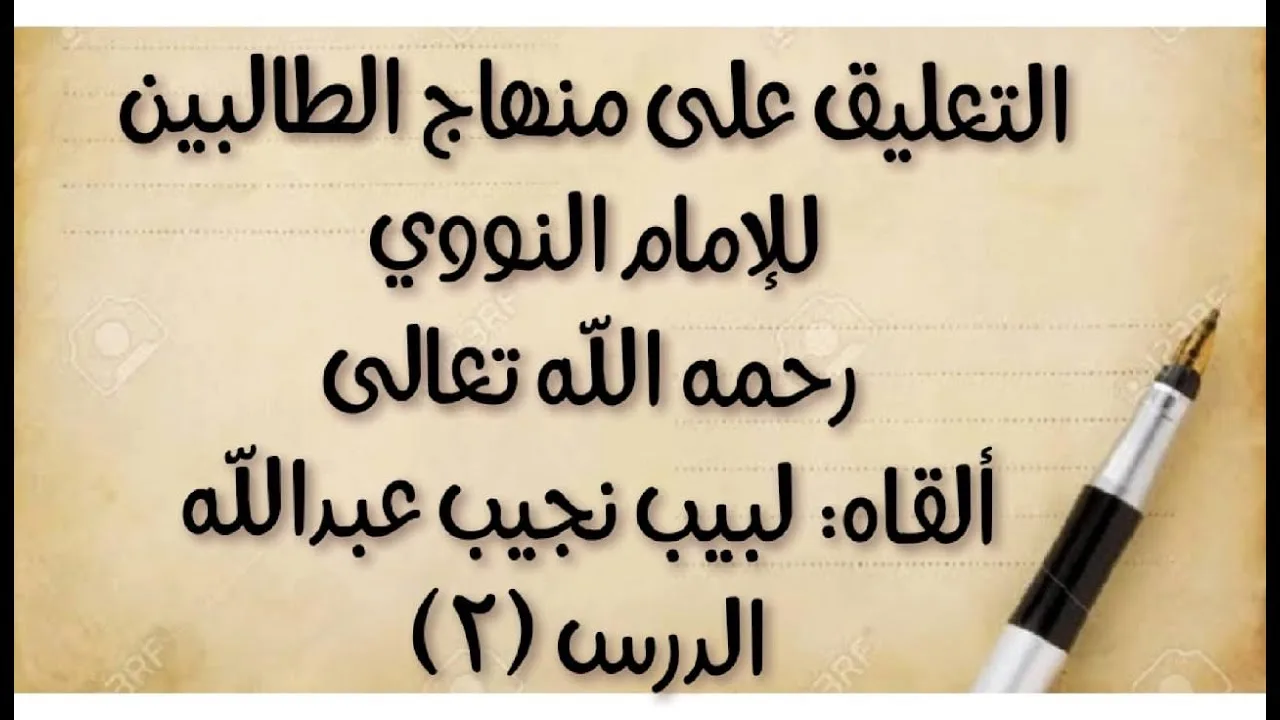 التعليق على منهاج الطالبين
للإمام النووي
رحمه اللّه تعالى
ألقاه: لبيب نجيب عبداللّه
الدرس (٢)